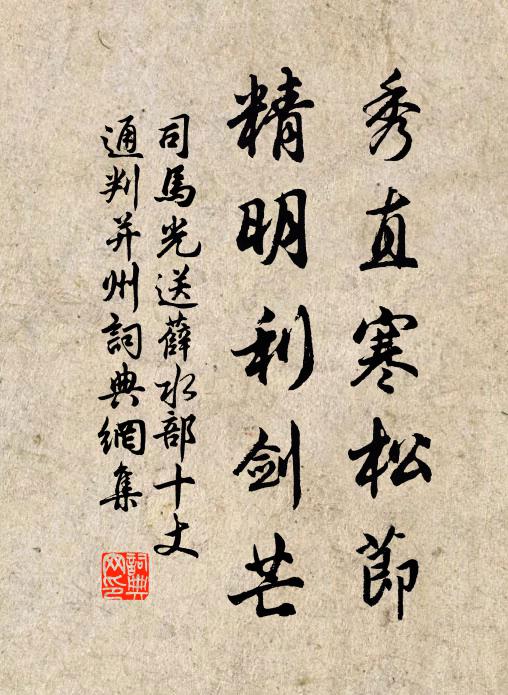 秀直寒松節
精明利剑芒
司馬光送薛水部十丈
通判并州詞典網集
詞典網印